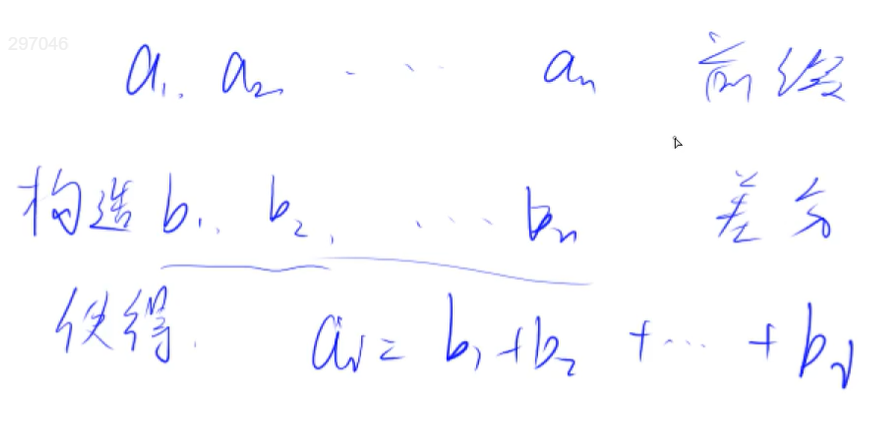 297046
a₁, a₂ ... aₙ 前缀
构造 b₁, b₂, ... bₙ 差分
使得. aᵢ = b₁ + b₂ + ... + bᵢ